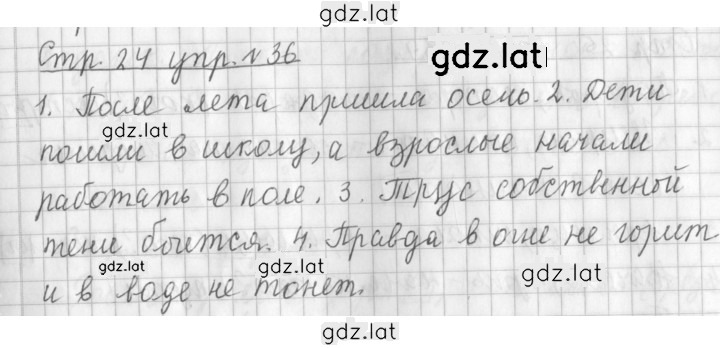 gdz.lat
Стр. 24 упр. № 36
gdz.lat
1. После лета пришла осень. 2. Дети
gdz.lat
пошли в школу, а взрослые начали
работать в поле. 3. Трус собственной
тени боится. 4. Правда в огне не горит
gdz.lat gdz.lat gdz.lat
и в воде не тонет.
gdz.lat